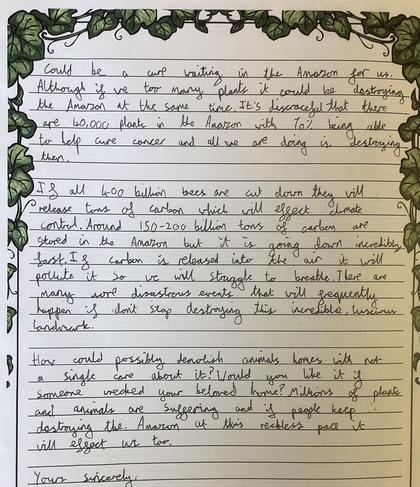 Could be a cure waiting in the Amazon for us.
Although if we too many plants it could be destroying
the Amazon at the same time. It's disgraceful that there
are 40,000 plants in the Amazon with 70% being able
to help cure cancer and all we are doing is destroying
them.
If all 400 billion trees are cut down they will
release tons of carbon which will effect climate
control. Around 150-200 billion tons of carbon are
stored in the Amazon but it is going down incredibly
fast. If carbon is released into the air it will
pollute it so we will struggle to breathe. There are
many more disastrous events that will frequently
happen if don't stop destroying this incredible, luscious
landmark.
How could possibly demolish animals homes with not
a single care about it? Would you like it if
someone wecked your beloved home? Millions of plants
and animals are suffering and if people keep
destroying the Amazon at this reckless pace it
will effect us too.
Yours sincerely,